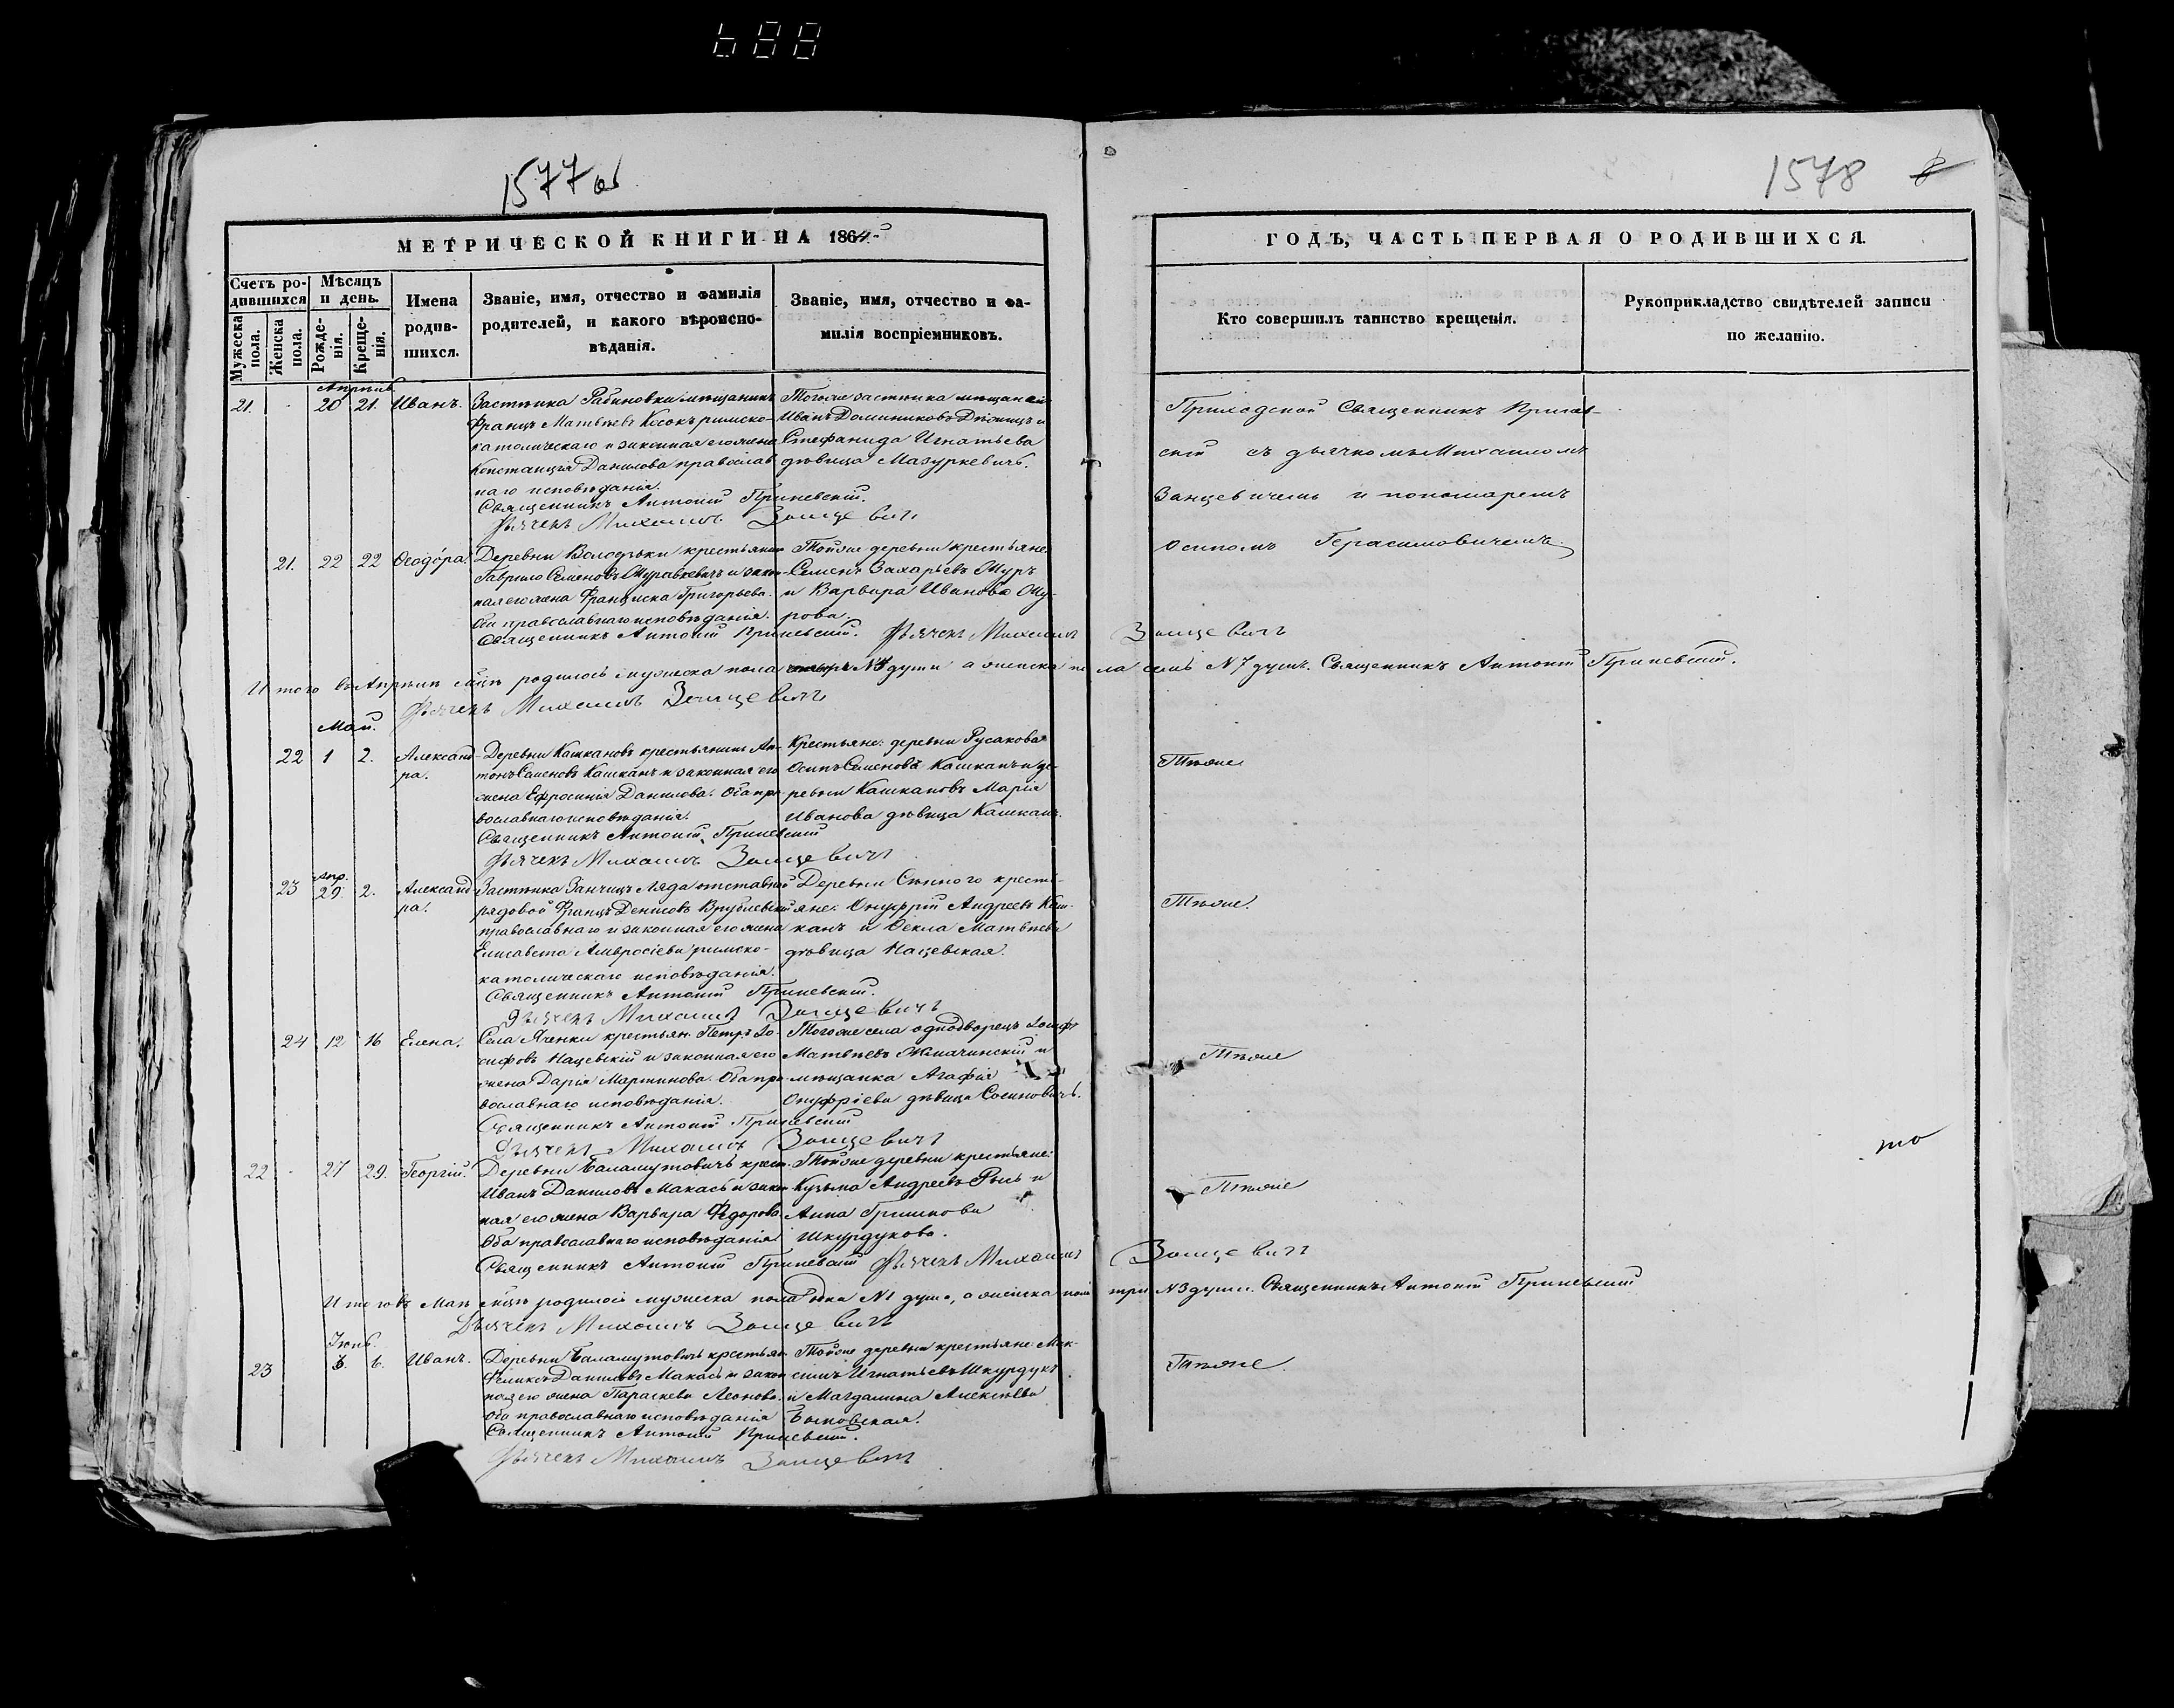 688
1577 об
1578
8
МЕТРИЧЕСКОЙ КНИГИ НА 1864-й
ГОДЪ, ЧАСТЬ ПЕРВАЯ О РОДИВШИХСЯ.
Счетъ родившихся
Мужеска пола.
Женска пола.
Мѣсяцъ и день.
Рожденія.
Крещенія.
Имена родившихся.
Званіе, имя, отчество и фамилія
родителей, и какого вѣроиспо-
вѣданія.
Званіе, имя, отчество и фа-
милія воспріемниковъ.
Кто совершилъ таинство крещенія.
Рукоприкладство свидѣтелей записи
по желанію.
Апрѣль
21. - 20 21. Иванъ.
Застѣнка Рабиновки мѣщанинъ
Францъ Матвѣевъ Косокъ римско-
католическаго и законная его жена
Констанція Данилова православ
наго исповѣданія.
Священникъ Антоній Гриневскій.
Дьячекъ Михаилъ Занцевичъ
Тогоже застѣнка мѣщане
Иванъ Доминиковъ и
Стефанида Игнатьева
дѣвица Мазуркевичъ.
Приходской Священникъ Гринев-
скій съ дьячкомъ Михаиломъ
Занцевичемъ и пономаремъ
Осипомъ Герасимовичемъ
21. 22 22 Ѳеодора.
Деревни Володьки крестьянин
Гаврило Семеновъ Журавкевичъ и закон-
ная его жена Франциска Григорьева.
Оба православнаго исповѣданія.
Священникъ Антоній Гриневскій. Дьячекъ Михаилъ Занцевичъ
Тойже деревни крестьяне
Семенъ Захарьевъ Журъ
и Варвара Иванова Жу-
рова.
Итого въ Апрѣлѣ мцѣ родилось мужеска пола души а женска пола семь №7 душъ. Священникъ Антоній Гриневскій.
Дьячекъ Михаилъ Занцевичъ
Май.
22 1 2. Александ-
ра.
Деревни Кашкановъ крестьянинъ Ан-
тонъ Семеновъ Кашканъ и законная его
жена Ефросинія Данилова. Оба пра
вославнаго исповѣданія.
Священникъ Антоній Гриневскій
Дьячекъ Михаилъ Занцевичъ
Крестьяне: деревни Русакова
Осипъ Семеновъ Кашканъ и де-
ревни Кашкановъ Марія
Иванова дѣвица Кашканъ.
Тѣже
Апр.
23 29. 2. Александ-
ра.
Застѣнка Ляда отставной
рядовой Францъ Денисовъ Врублевскій
православнаго и законная его жена
Елисавета Амвросіева римско-
католическаго исповѣданія.
Священникъ Антоній Гриневскій.
Дьячекъ Михаилъ Занцевичъ
Деревни Сѣнного кресть-
яне: Онуфрій Андреевъ Каш-
канъ и Ѳекла Матвѣева
дѣвица Нацевская.
Тѣже.
24 12 16 Елена.
Села Яченки крестьян. Петръ Іо-
сифовъ Нацевскій и законная его
жена Дарія Мартинова. Оба пра-
вославнаго исповѣданія.
Священникъ Антоній Гриневскій
Дьячекъ Михаилъ Занцевичъ
Тогоже села однодворецъ Іосифъ
Матвѣевъ Жмачинскій и
мѣщанка Агафія
Онуфріева дѣвица Сосиновичъ.
Тѣже
22 - 27 29. Георгій.
Деревни Баламутовичъ крест.
Иванъ Даниловъ Макась и закон
ная его жена Варвара Федорова
Оба православнаго исповѣданія
Священникъ Антоній Гриневскій Дьячекъ Михаилъ Занцевичъ
Тойже деревни крестьяне:
Кузьма Андреевъ Рысь и
Анна Гришкова
Шкурдукова.
Тѣже
то
Итого въ Маѣ мцѣ родилось мужеска пола одна №1 душа, а женска пола три №3 души. Священникъ Антоній Гриневскій
Дьячекъ Михаилъ Занцевичъ
Іюнь.
23 3. 6. Иванъ.
Деревни Баламутовичъ крестьян
Феликсъ Даниловъ Макась и закон
ная его жена Параскева Леонова.
Оба православнаго исповѣданія
Священникъ Антоній Гриневскій.
Дьячекъ Михаилъ Занцевичъ
Тойже деревни крестьяне Мак-
симъ Игнатьевъ Шкурдукъ
и Магдалина Алексѣева
Быковская.
Тѣже